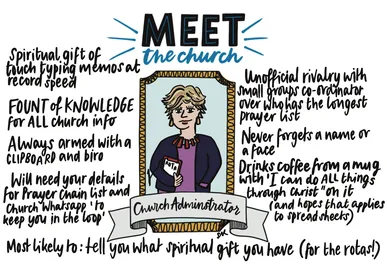 MEET
the church
Spiritual gift of
touch typing memos at
record speed
FOUNT of KNOWLEDGE
for ALL church info
Always armed with a
CLIPBOARD and biro
Will need your details
for Prayer Chain list and
Church Whatsapp 'to
keep you in the loop'
Church Administrator
Unofficial rivalry with
small groups co-ordinator
over who has the longest
prayer list
Never forgets a name or
a face
Drinks coffee from a mug
with 'I can do ALL things
through Christ' on it
(and hopes that applies
to spreadsheets)
Most likely to: tell you what spiritual gift you have (for the rotas!)